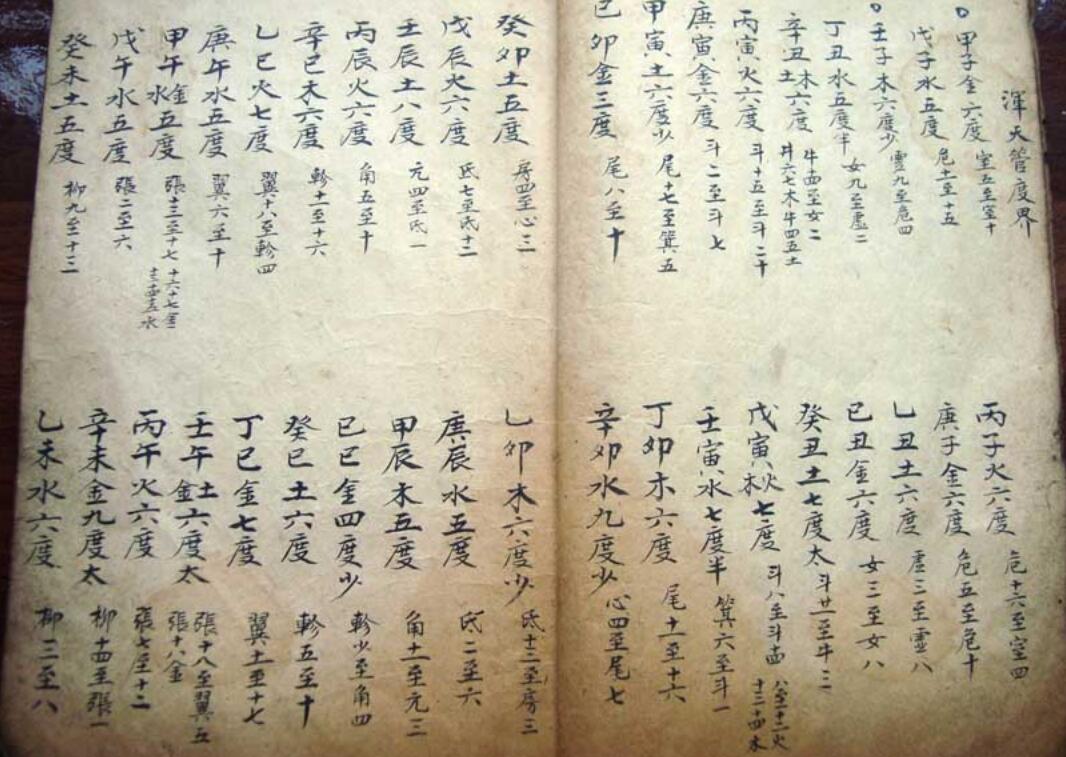 渾天管度界
甲子金六度 室五至室十
丙子火六度 危十六至室四
戊子水五度 危十一至十五
庚子金六度 危五至危十
壬子木六度少 虛九至危四
乙丑土六度 虛三至虛八
丁丑水五度半 女九至虛二
己丑金六度 女三至女八
辛丑木土六度 牛四至女二
癸丑土七度太 斗廿一至牛三
丙寅火六度 斗十五至斗二十
戊寅火木七度 斗八至斗十四
庚寅金六度 斗二至斗七
壬寅水七度半 箕六至斗一
甲寅土六度少 尾十七至箕五
丁卯木六度 尾十一至十六
己卯金三度 尾八至十
辛卯水九度少 心四至尾七
癸卯土五度 房四至心三
乙卯木六度少 氐十三至房三
戊辰火六度 氐七至氐十二
庚辰水五度 氐二至六
壬辰土八度 亢四至氐一
甲辰木五度 角十一至亢三
丙辰火六度 角五至十
己巳金四度少 軫少至角四
辛巳木六度 軫十一至十六
癸巳土六度 軫五至十
乙巳火七度 翼十八至軫四
丁巳金七度 翼十一至十七
庚午水五度 翼六至十
壬午土金六度太 張十八至翼五 張十八金
甲午金水五度 張十三至十七
丙午火六度 張七至十二
戊午水五度 張二至六
辛未金九度太 柳十四至張一
癸未土五度 柳九至十三
乙未水六度 柳三至八